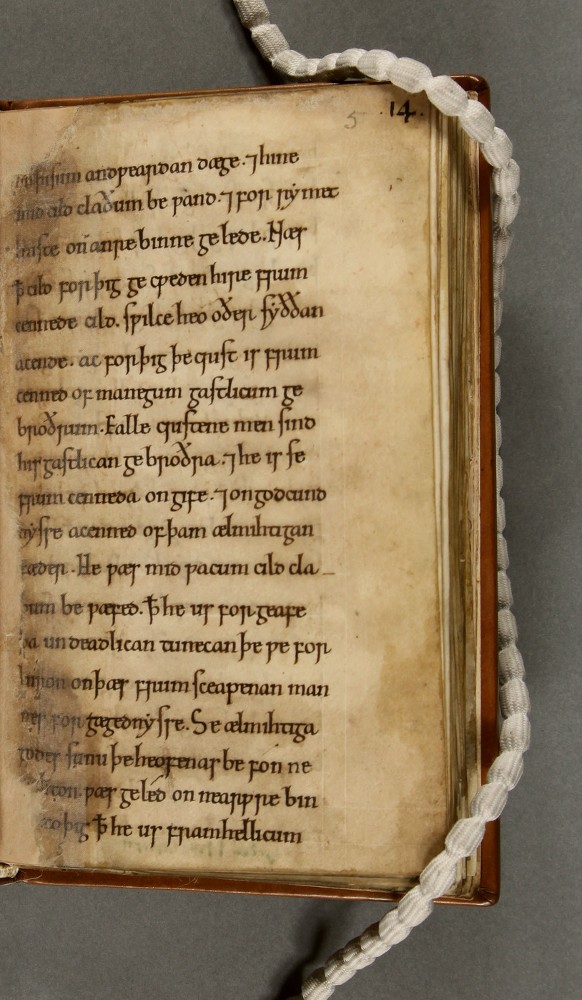 5 .14.
þysum andƿeardan dæge. ⁊ hine
mid cild claðum beƿand. ⁊ for rymet
leaste on anre binne gelede. Næs
ꝥ cild forþig gecƿeden hire frum
cennede cild. sƿilce heo oðer syððan
acende. ac forþig þe crist is frum
cenned of manegum gastlicum ge
broðrum. Ealle cristene men sind
his gastlican gebroðra. ⁊ he is se
frum cenneda on gife. ⁊ on godcund
nysse acenned of þam ælmihtigan
fæder. He ƿæs mid ƿacum cild cla_
ðum beƿæfed. ꝥ he us forgeafe
ða undeadlican tunecan þe ƿe for
luron on þæs frumsceapenan man
nes forgægednysse. Se ælmihtiga
godes sunu þe heofenas befon ne
mihton. ƿæs geled on nearƿre bin
ne to þig ꝥ he us fram hellicum